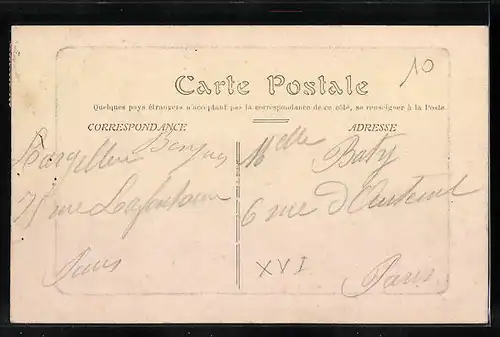 10
Carte Postale
Quelques pays étrangers n'acceptant pas la correspondance de ce côté, se renseigner à la Poste.
CORRESPONDANCE
75 rue Lafontaine
Paris
ADRESSE
Melle Baty
6 rue d'Auteuil
XVI
Paris